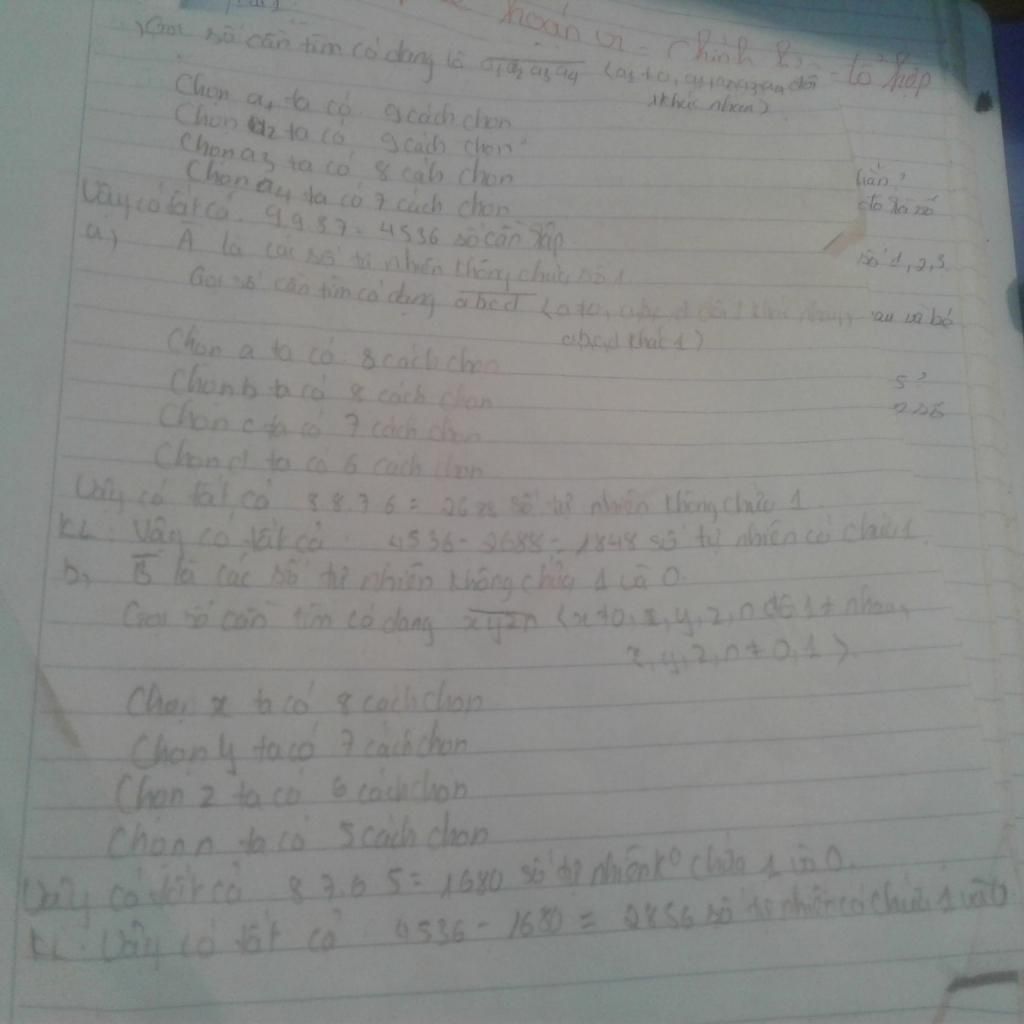 hoán vị - chỉnh - tổ hợp
Gọi số cần tìm có dạng là a1a2a3a4 (a1 ≠ 0, đôi
1 khác nhau)
Chọn a1 ta có 9 cách chọn
Chọn a2 ta có 9 cách chọn
Chọn a3 ta có 8 cách chọn
Chọn a4 ta có 7 cách chọn
Vậy có tất cả 9.9.8.7 = 4536 số cần lập
a, A là các số tự nhiên không chứa số 1
Gọi số cần tìm có dạng abcd (a ≠ 0, a,b,c,d đôi 1 khác nhau,
a,b,c,d khác 1)
Chọn a ta có 8 cách chọn
Chọn b ta có 8 cách chọn
Chọn c ta có 7 cách chọn
Chọn d ta có 6 cách chọn
Vậy có tất cả 8.8.7.6 = số tự nhiên không chứa 1
KL: Vậy có tất cả: 4536 - 2688 = 1848 số tự nhiên có chứa 1.
b, B là các số tự nhiên không chứa 1 và 0.
Gọi số cần tìm có dạng xyzn (x ≠ 0, x, y, z, n đôi 1 ≠ nhau,
x, y, z, n ≠ 0, 1).
Chọn x ta có 8 cách chọn
Chọn y ta có 7 cách chọn
Chọn z ta có 6 cách chọn
Chọn n ta có 5 cách chọn
Vậy có tất cả 8.7.6.5 = 1680 số tự nhiên k° chứa 1 và 0.
KL: Vậy có tất cả 4536 - 1680 = 2856 số tự nhiên có chứa 1 và 0
số 1, 2, 3